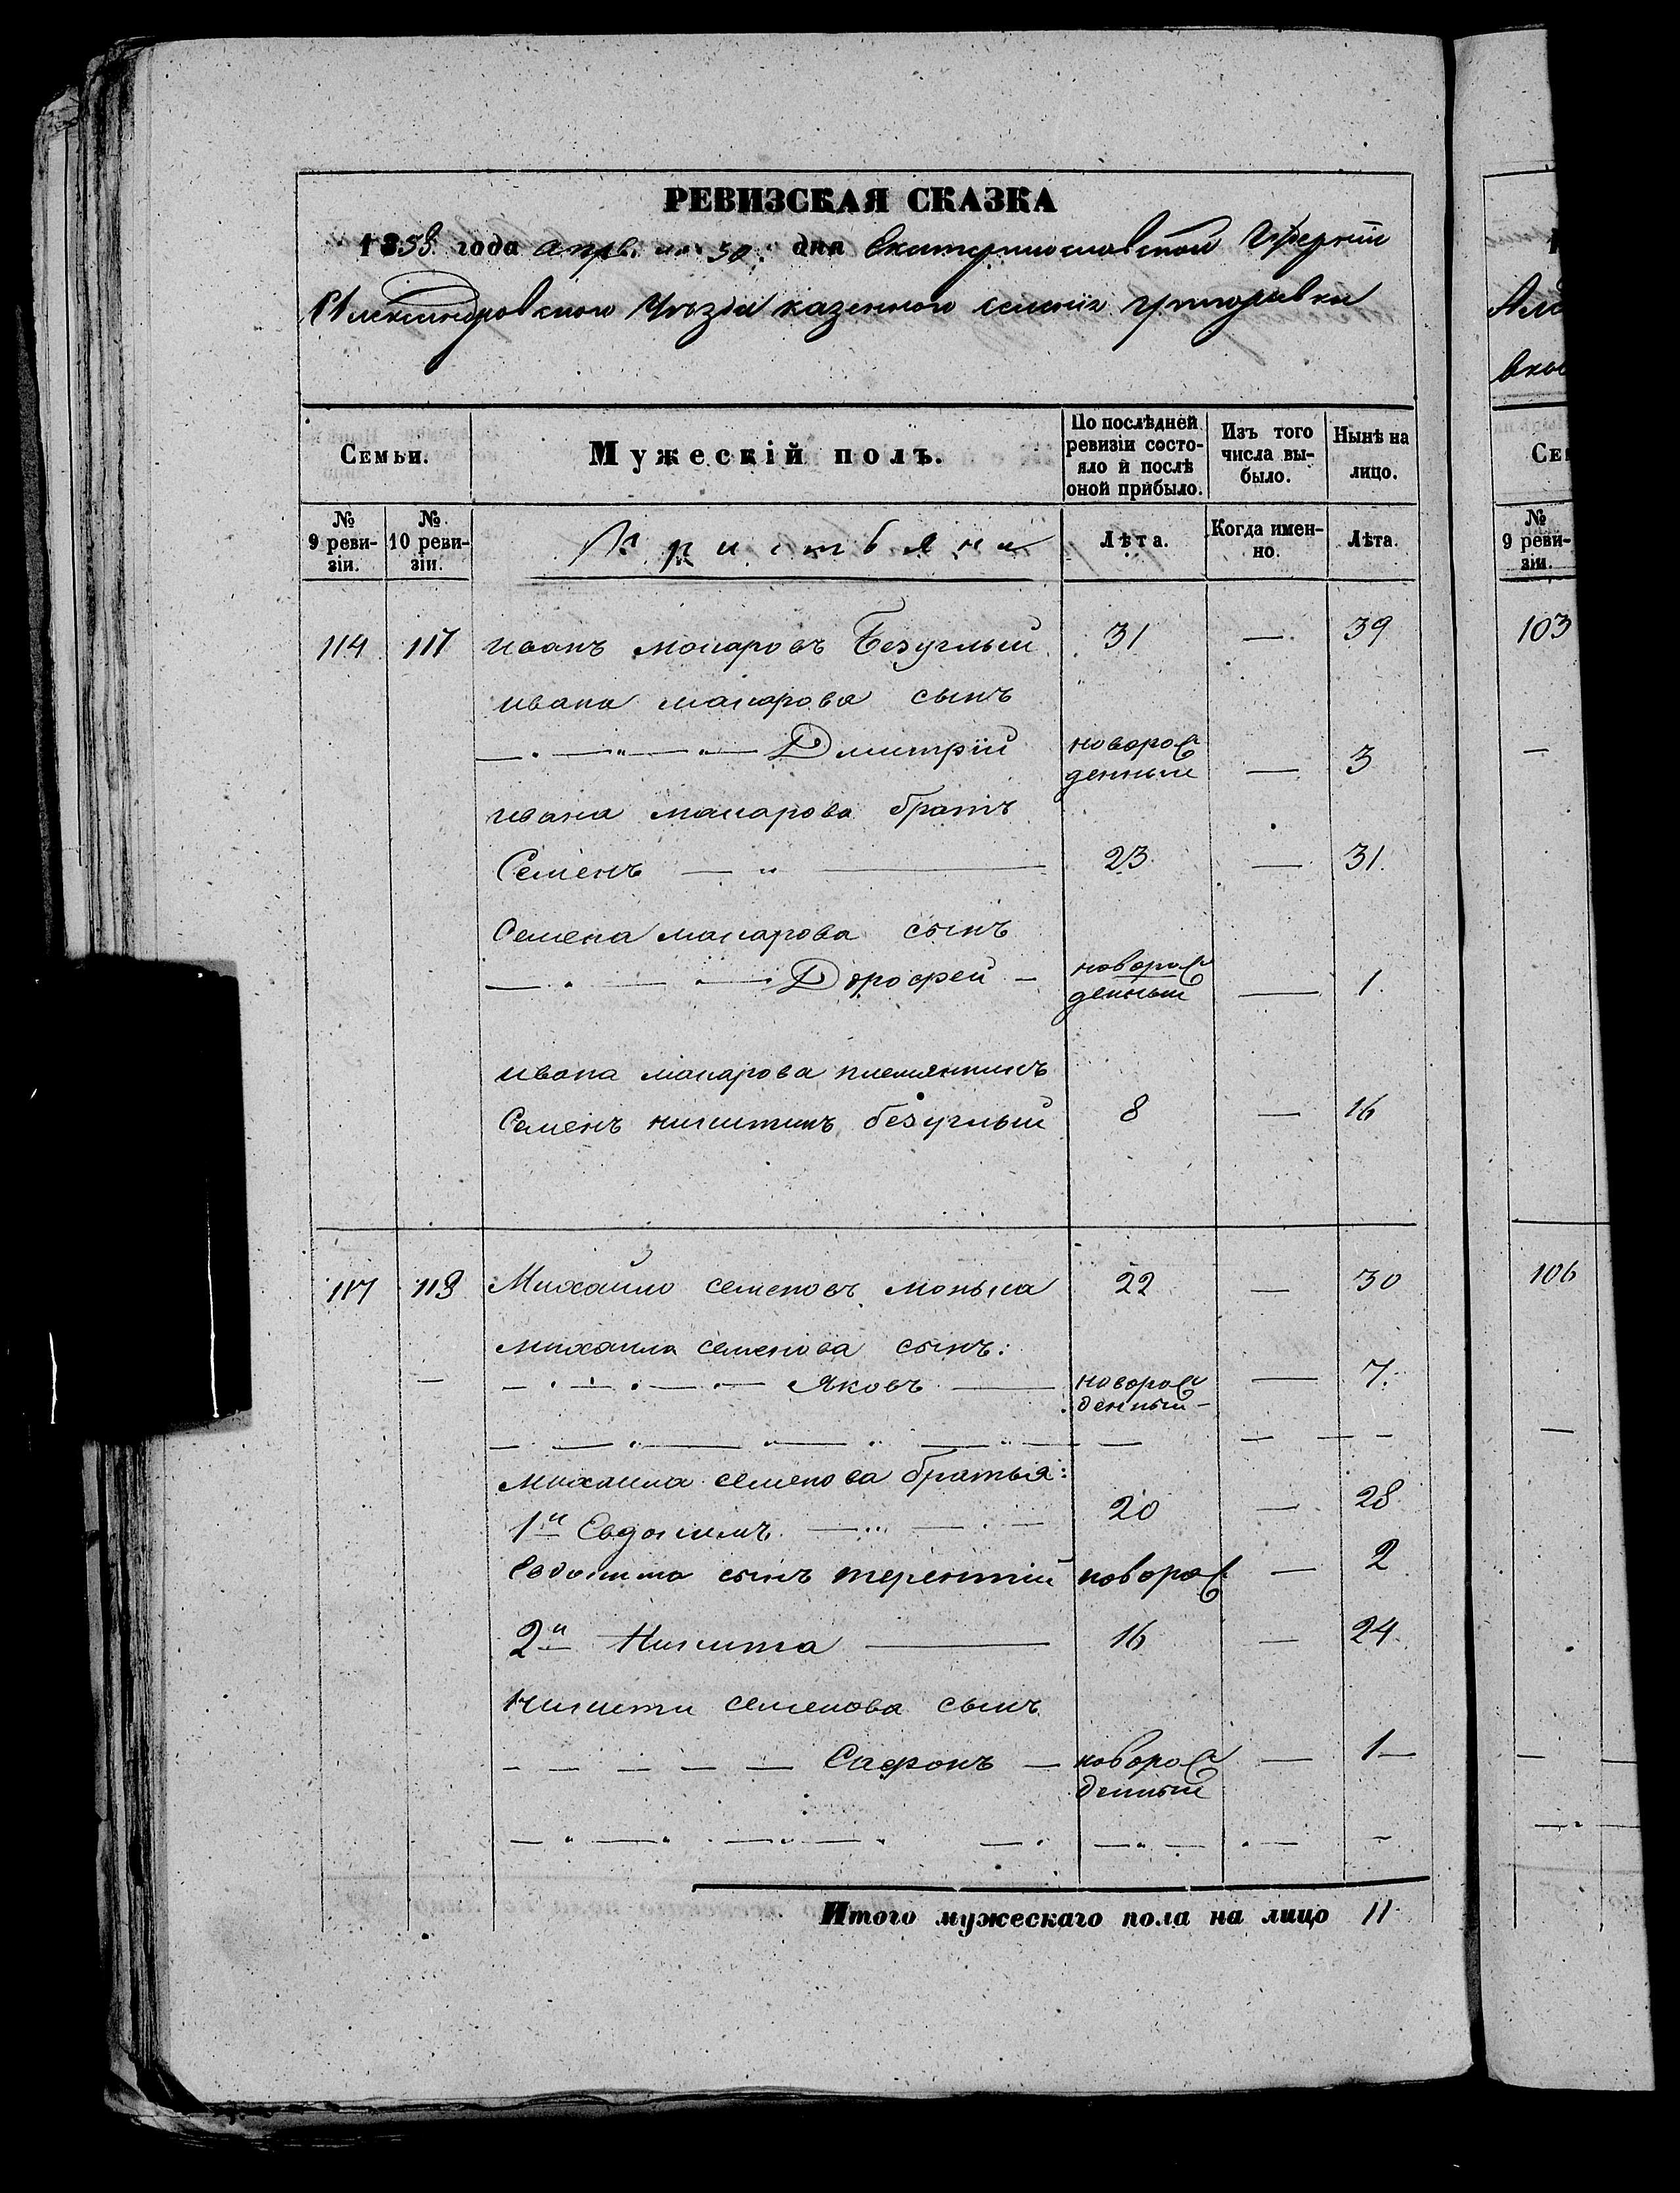 РЕВИЗСКАЯ СКАЗКА
1858 года апрѣ. 30 дня Екатеринославской Губерніи
Александровскаго Уѣзда казеннаго селенія Григоровки
Семьи.
Мужескій полъ.
По послѣдней ревизіи состояло и послѣ оной прибыло.
Изъ того числа выбыло.
Нынѣ на лицо.
№ 9 ревизіи.
№ 10 ревизіи.
Кристьяни
Лѣта.
Когда именно.
Лѣта.
114 117 иванъ макаровъ Безуглый 31 — 39
ивана макарова сынъ
Дмитрій новорожденный — 3
ивана макарова братъ
Семенъ — 23 — 31.
Семена макарова сынъ
Дорофей — новорожденный — 1.
ивана макарова племянникъ
Семенъ никитинъ безуглый 8 — 16
117 118 Михайло семеновъ 22 — 30
михаила семенова сынъ:
Яковъ — новорожденный — 7.
михаила семенова братья:
1й Евдокимъ 20 — 28
Евдокима сынъ терентий новорож — 2
2й Никита — 16 — 24.
никиты семенова сынъ
Сафонъ — новорожденный — 1
Итого мужескаго пола на лицо 11
Але
№ 9 ревизіи.
103
106